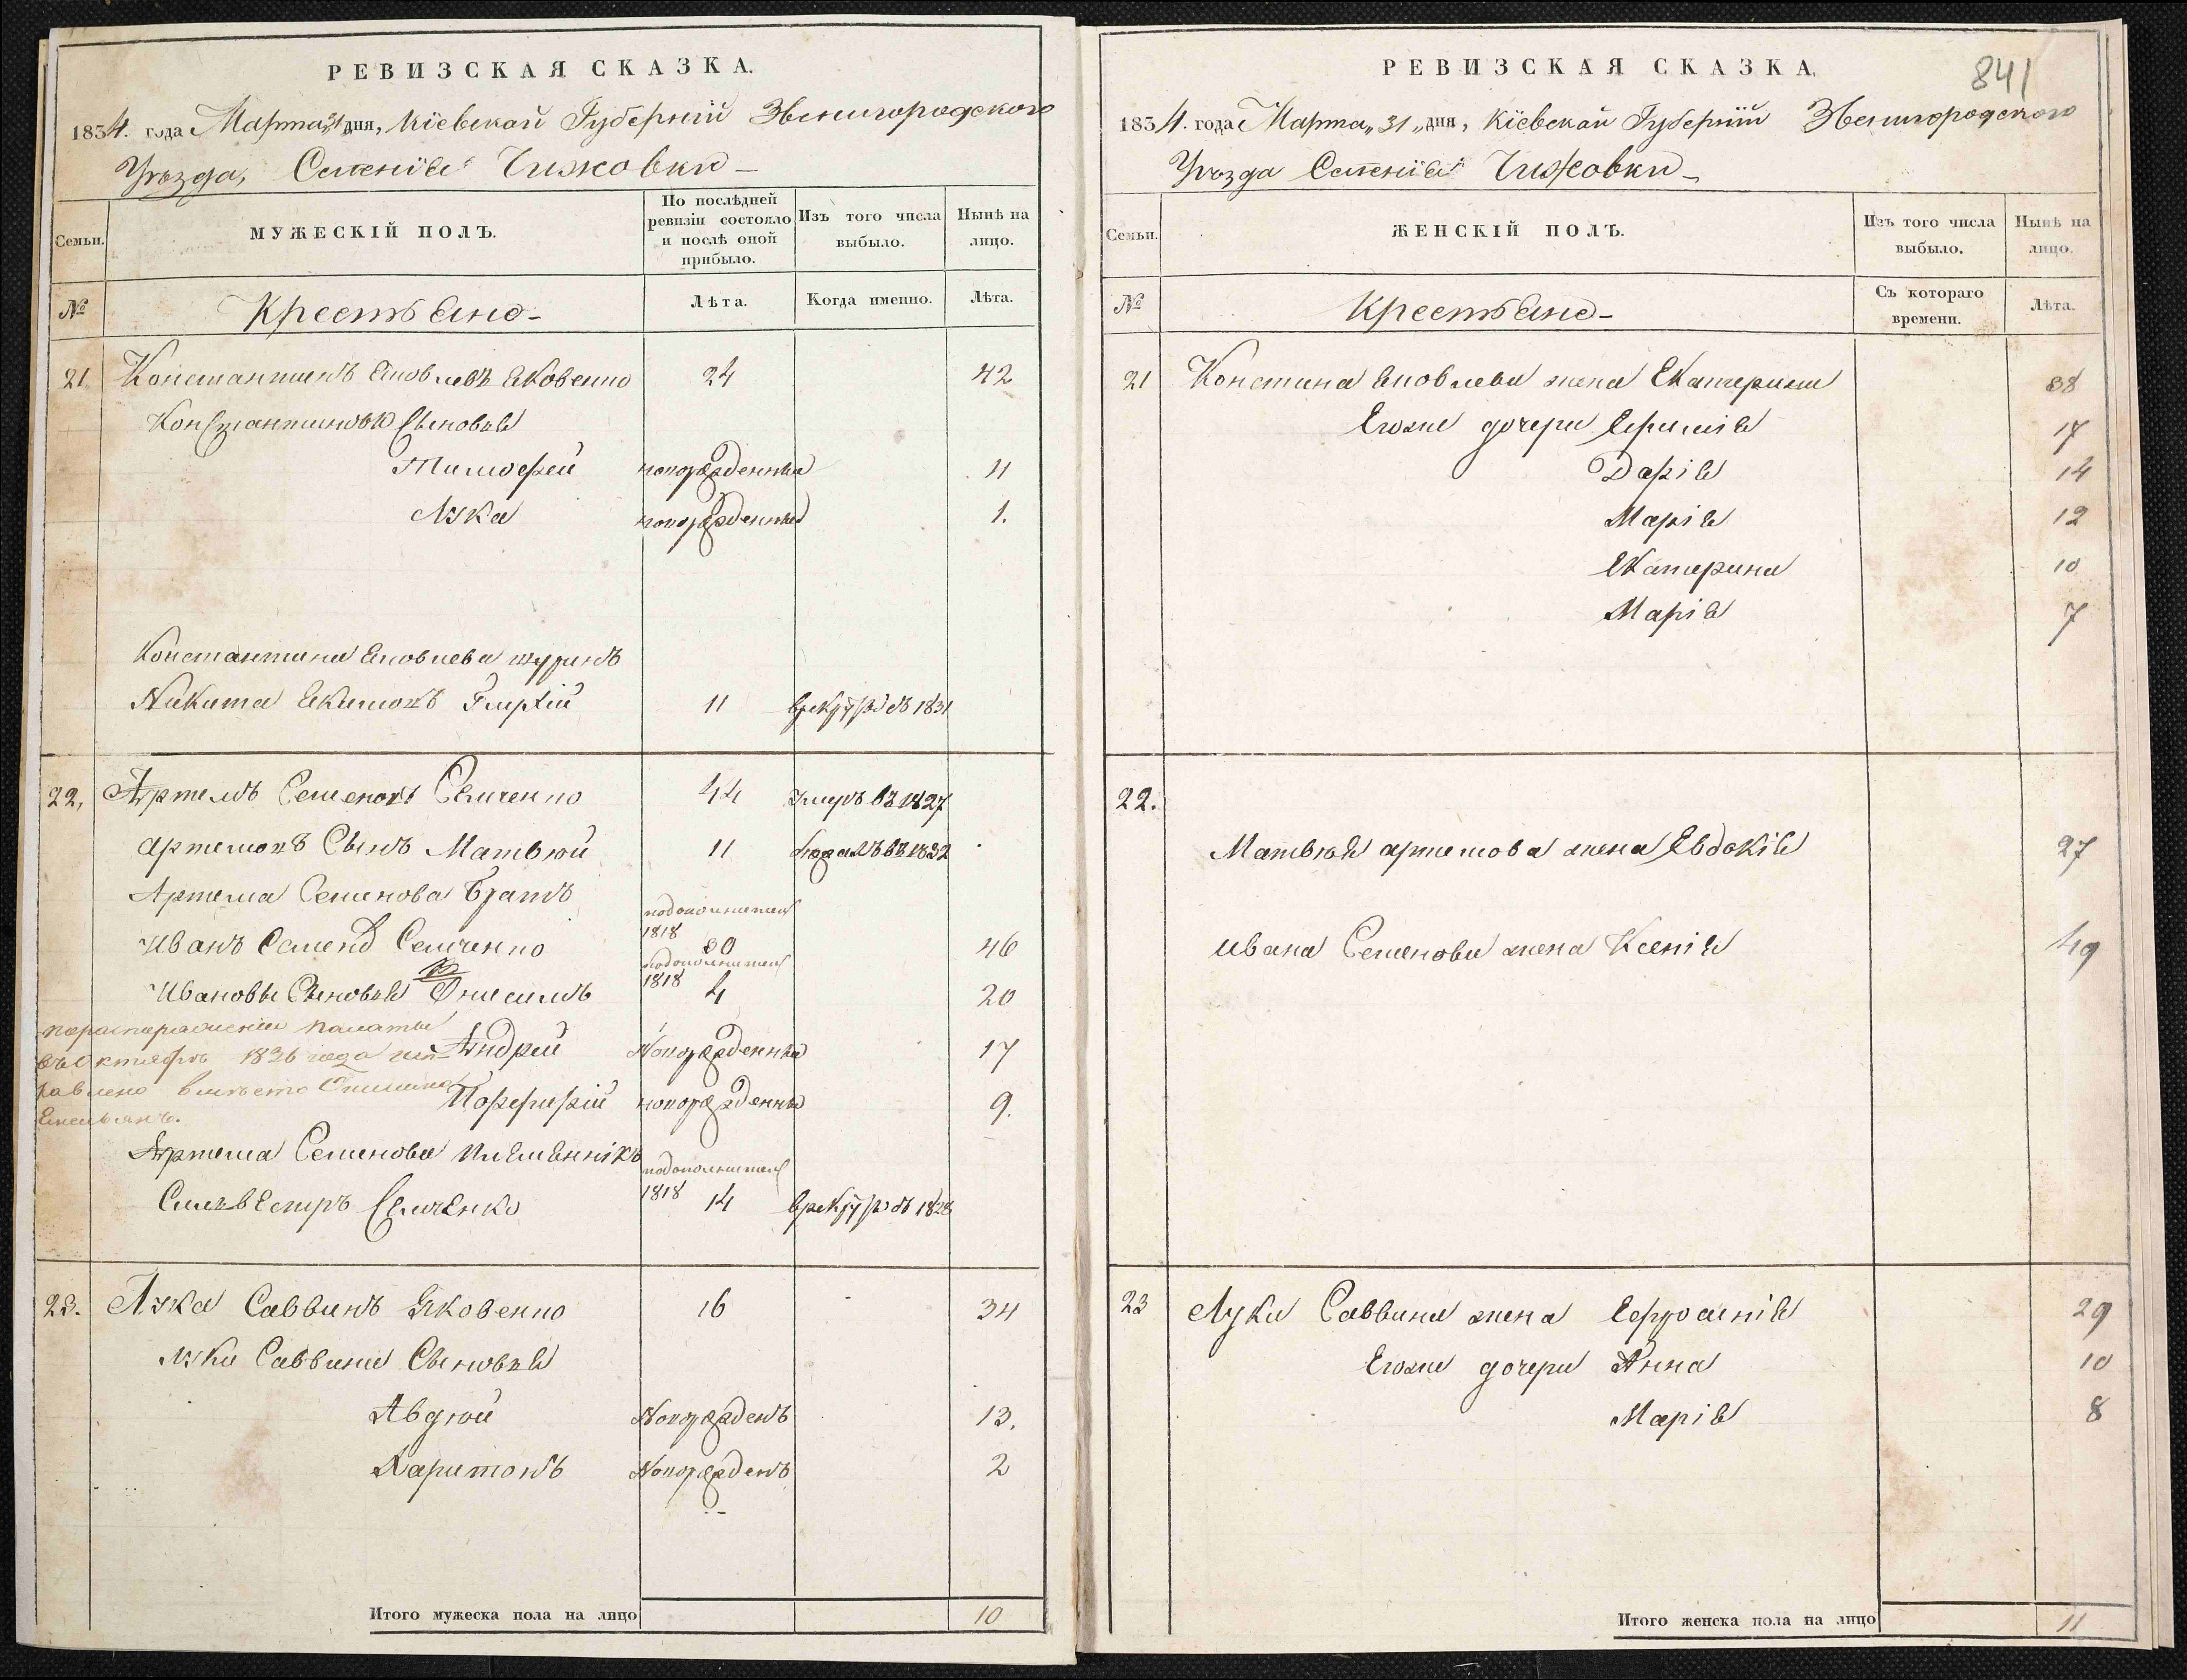 РЕВИЗСКАЯ СКАЗКА.
1834. года Марта 31 дня, Кіевской Губерніи Звенигородского
Уѣзда, Селенія Чижовки
Семьи.
МУЖЕСКІЙ ПОЛЪ.
По послѣдней ревизіи состояло и послѣ оной прибыло.
Изъ того числа выбыло.
Нынѣ на лицо.
№
Крестьяне
Лѣта.
Когда именно.
Лѣта.
21 Константинъ Яковлевъ Яковенко 24 42
Константиновы Сыновья
Тимофей новорожденныи 11
Лука новорожденныи 1.
Константина Яковлева шуринъ
Никита Екимовъ 11 врекруты въ 1831
22, Артемъ Семеновъ Семченко 44 Умеръ въ 1827
Артемовъ Сынъ Матвѣй 11 въ 1832
Артема Семенова Братъ
подополнител
1818
Иванъ Семеновъ Семченко 30 46
подополнител
1818
Ивановы Сыновья Онисимъ 4 20
Андрей Новорожденныи 17
Порфирій новорожденны 9.
по распоряженію палаты
въ Октябрѣ 1836 года исп
равлено вмѣсто Онисима
Емельянъ.
Артема Семенова племянникъ
подополнител
1818
Сильвестръ Семченко 14 врекруты въ 1828
23. Лука Саввинъ Яковенко 16 34
Луки Саввина Сыновья
Авдѣй Новорожденъ 13.
Харитонъ Новорожденъ 2
Итого мужеска пола на лицо 10
841
РЕВИЗСКАЯ СКАЗКА.
1834. года Марта „31„ дня, Кіевской Губерніи Звенигородского
Уѣзда Селенія Чижовки
Семьи.
ЖЕНСКІЙ ПОЛЪ.
Изъ того числа выбыло.
Нынѣ на лицо.
№
Крестьяне
Съ котораго времени.
Лѣта.
21 Констина Яковлева жена Екатерина 38
Егоже дочери 17
Дарія 14
Марія 12
Екатерина 10
Марія 7
22.
Матвѣя артемова жена Евдокія 27
Ивана Семенова жена Ксенія 49
23 Луки Саввина жена Ефросинія 29
Егоже дочери Анна 10
Марія 8
Итого женска пола на лицо 11